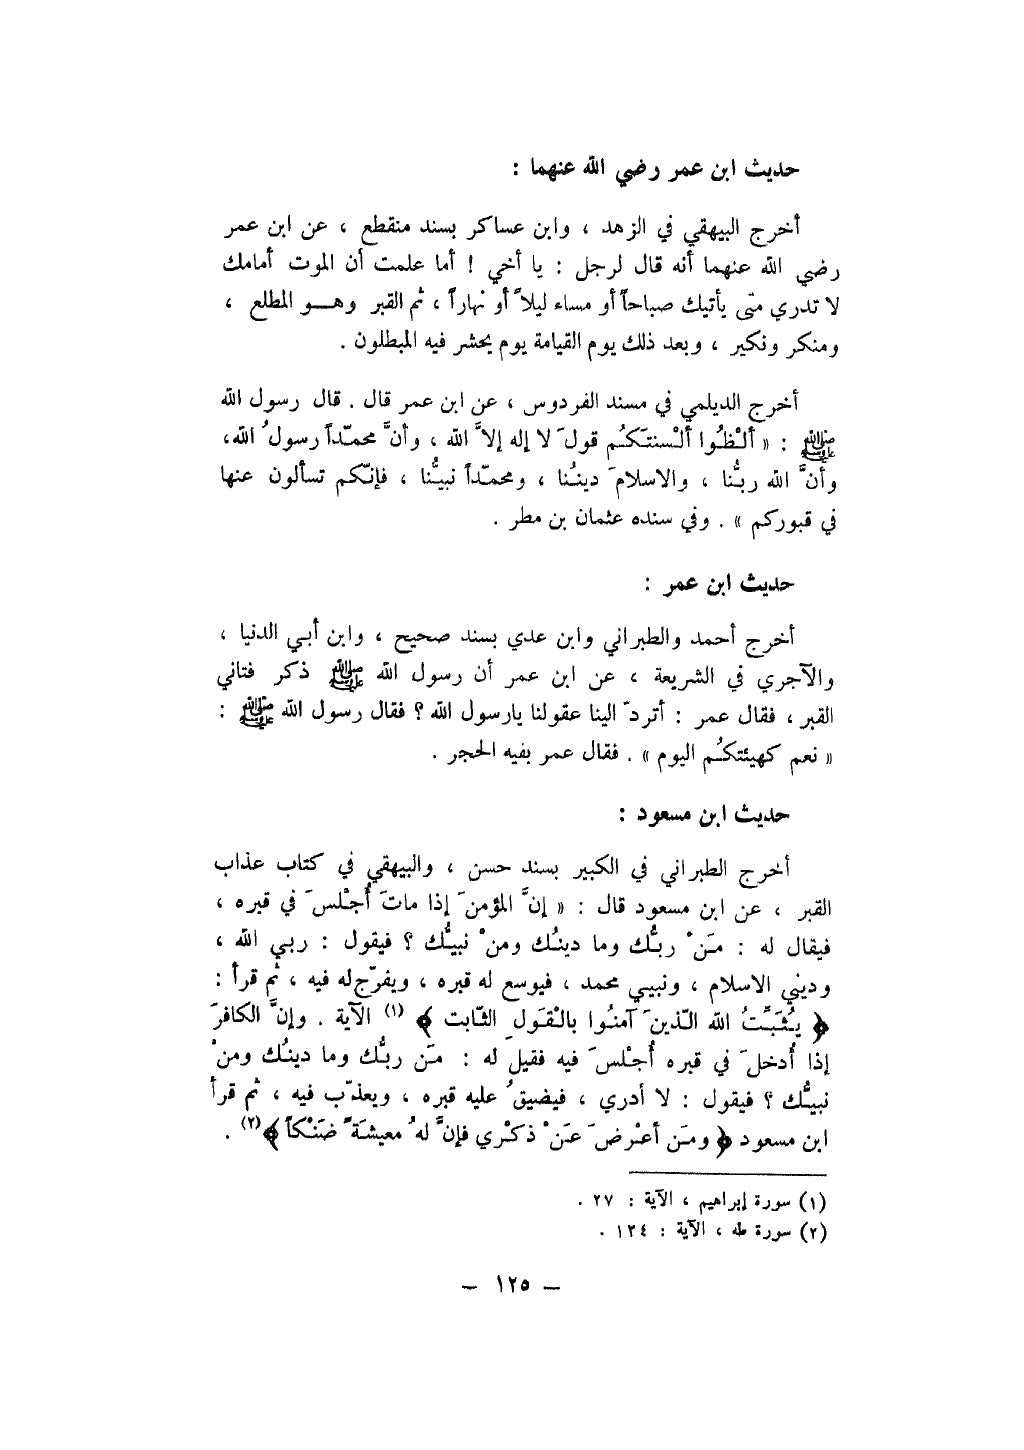 حديث ابن عمر رضي الله عنهما :
أخرج البيهقي في الزهد ، وابن عساكر بسند منقطع ، عن ابن عمر
رضي الله عنهما أنه قال لرجل : يا أخي ! أما علمت أن الموت أمامك
لا تدري متى يأتيك صباحاً أو مساء ليلاً أو نهاراً ، ثم القبر وهـــو المطلع ،
ومنكر ونكير ، وبعد ذلك يوم القيامة يوم يحشر فيه المبطلون .
أخرج الديلمي في مسند الفردوس ، عن ابن عمر قال . قال رسول الله
ﷺ : « ألْظُوا ألْسنتَكُم قولَ لا إله إلاَّ الله ، وأنَّ محمّداً رسولُ الله،
وأنَّ الله ربُّنا ، والاسلامَ دينُنا ، ومحمّداً نبيُّنا ، فإنّكم تسألون عنها
في قبوركم » . وفي سنده عثمان بن مطر .
حديث ابن عمر :
أخرج أحمد والطبراني وابن عدي بسند صحيح ، وابن أبـي الدنيا ،
والآجري في الشريعة ، عن ابن عمر أن رسول الله ﷺ ذكر فتاني
القبر ، فقال عمر : أتردّ الينا عقولنا يارسول الله ؟ فقال رسول الله ﷺ :
« نعم كهيئتكُم اليوم » . فقال عمر بفيه الحجر .
حديث ابن مسعود :
أخرج الطبراني في الكبير بسند حسن ، والبيهقي في كتاب عذاب
القبر ، عن ابن مسعود قال : « إنَّ المؤمنَ إذا ماتَ أُجْلسَ في قبره ،
فيقال له : مَنْ ربُّك وما دينُك ومنْ نبيُّك ؟ فيقول : ربـي الله ،
وديني الاسلام ، ونبيـي محمد ، فيوسع له قبره ، ويفرّج له فيه ، ثم قرأ :
﴿ يُثَبِّتُ الله الّذينَ آمنُوا بالْقَولِ الثّابت ﴾ (١) الآية . وإنَّ الكافرَ
إذا أُدخلَ في قبره أُجْلسَ فيه فقيل له : مَن ربُّك وما دينُك ومنْ
نبيُّك ؟ فيقول : لا أدري ، فيضيقُ عليه قبره ، ويعذّب فيه ، ثم قرأ
ابن مسعود ﴿ ومَن أعْرضَ عَنْ ذكْري فإنَّ لهُ معيشَةً ضَنْكاً ﴾(٢) .
(١) سورة إبراهيم ، الآية : ٢٧ .
(٢) سورة طه ، الآية : ١٢٤ .
– ١٢٥ –